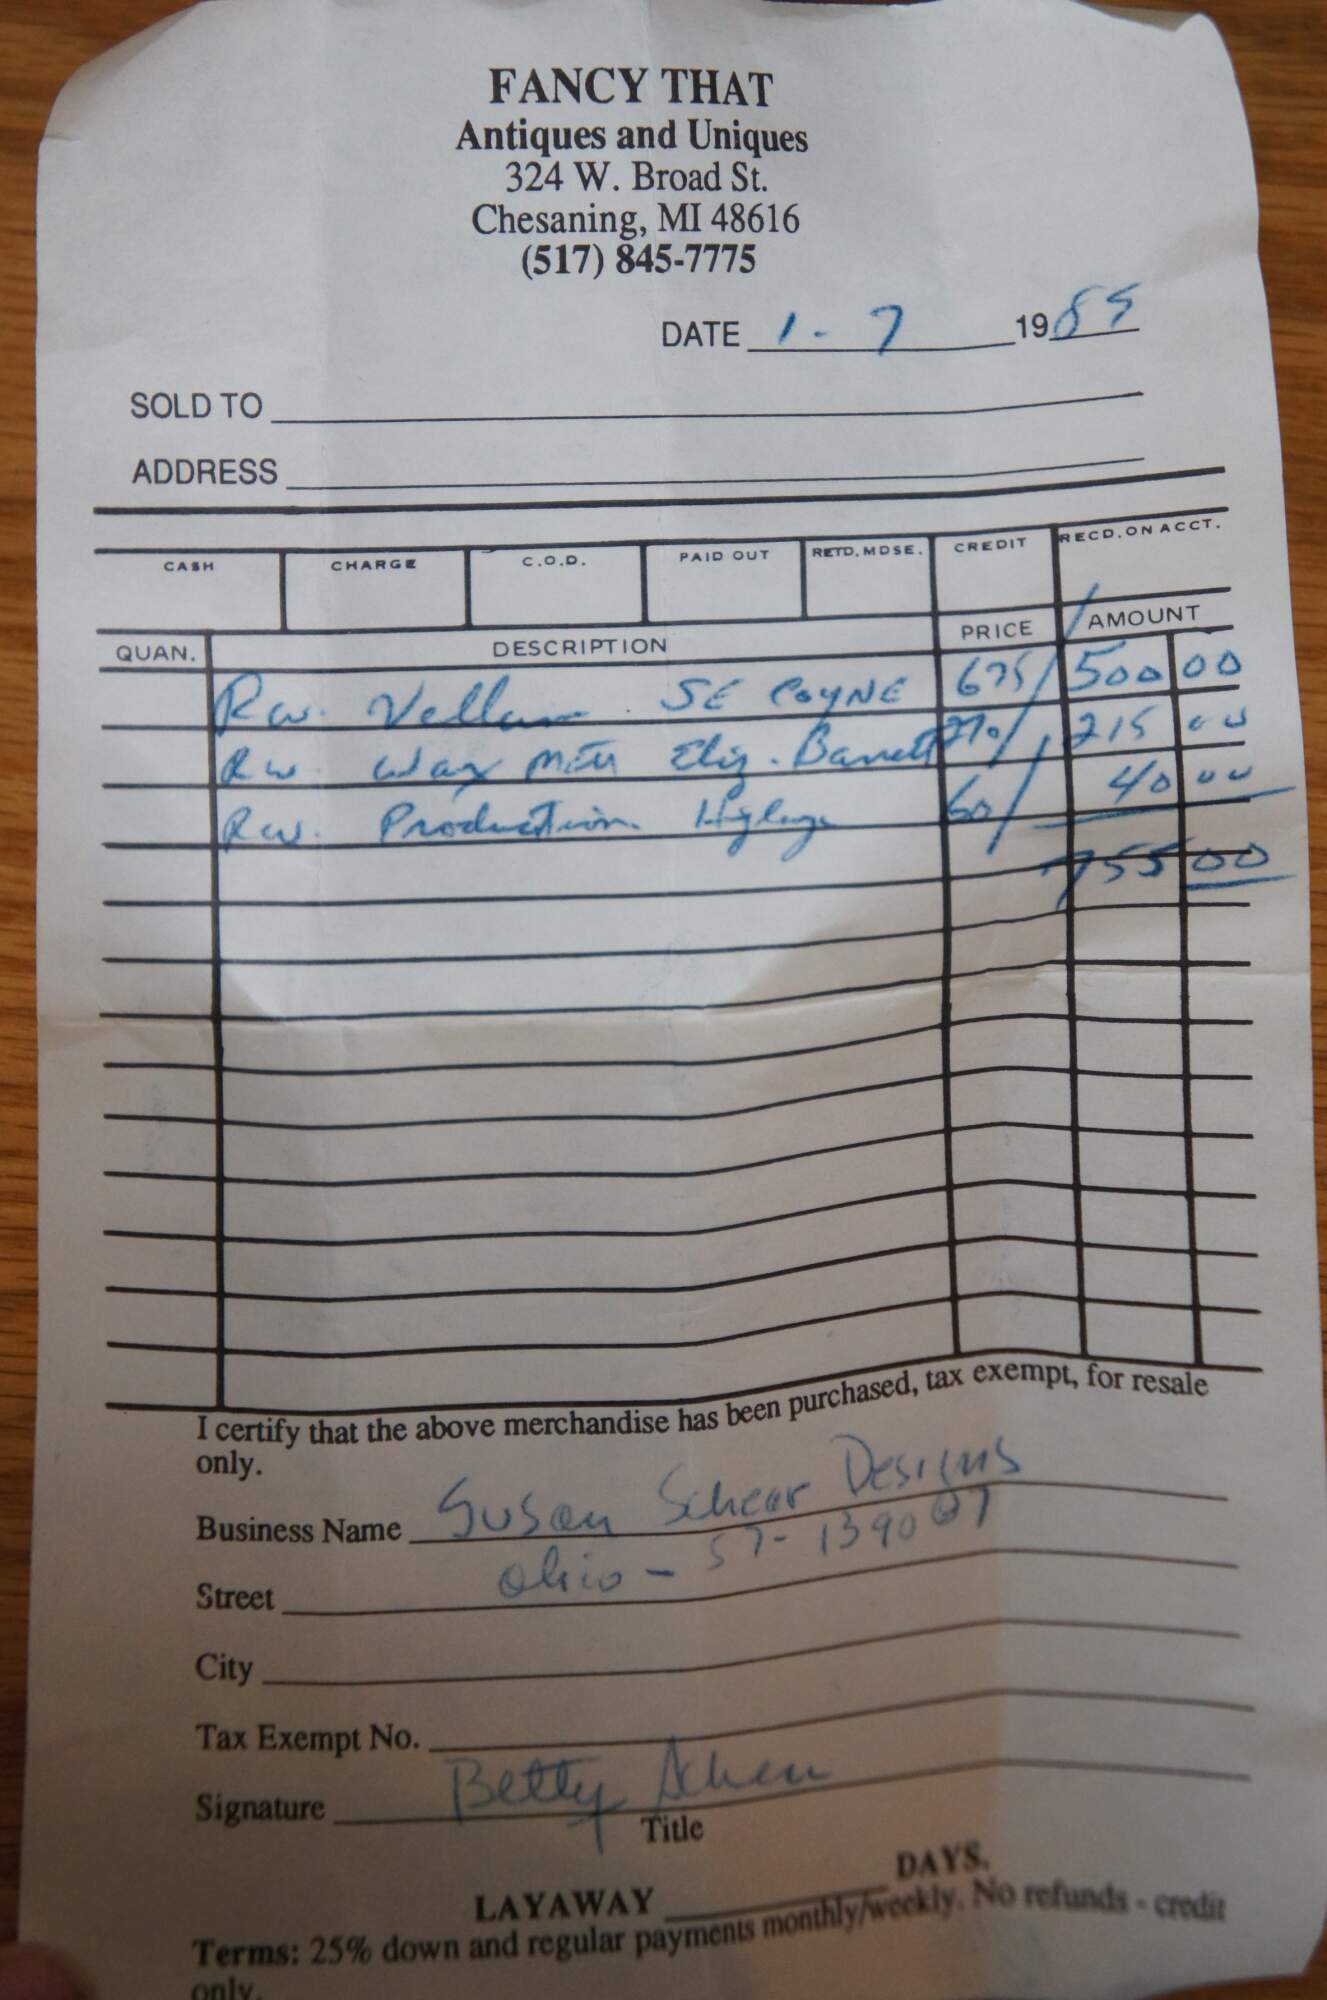 FANCY THAT
Antiques and Uniques
324 W. Broad St.
Chesaning, MI 48616
(517) 845-7775
DATE 1-7 1989
SOLD TO
ADDRESS
CASH CHARGE C.O.D. PAID OUT RETD. MDSE. CREDIT RECD. ON ACCT.
QUAN. DESCRIPTION PRICE AMOUNT
Rw. Vellum SE COYNE 675/ 500 00
Rw. Wax Matt Eliz. Barrett 270/ 215 00
Rw. Production 60/ 40 00
755 00
I certify that the above merchandise has been purchased, tax exempt, for resale
only.
Business Name Susan Scheer Designs
Street Ohio - 57-139087
City
Tax Exempt No.
Signature Betty Scheer
Title
LAYAWAY DAYS.
Terms: 25% down and regular payments monthly/weekly. No refunds - credit
only.